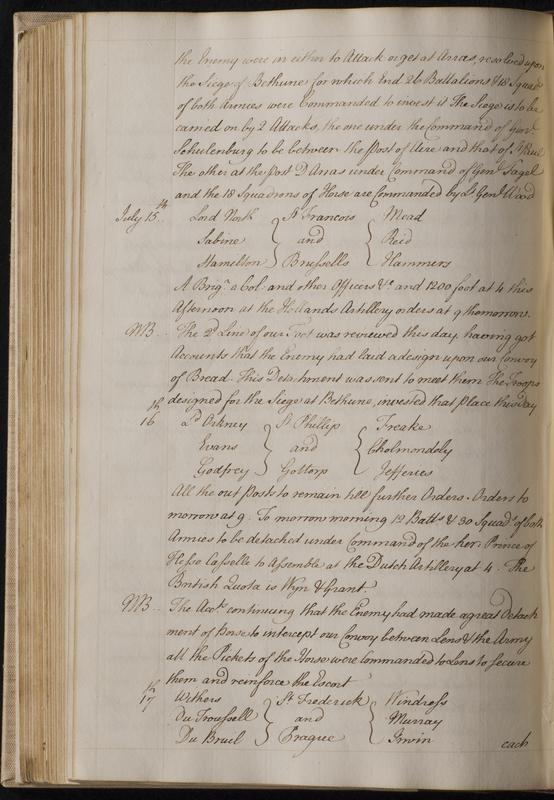 the Enemy were in either to Attack or get at Arras, resolved upon
the Siege of Bethune for which End 26 Battalions & 18 Squads
of both Armies were Commanded to invest it The Siege is to be
carried on by 2 Attacks, the one under the Command of Genl
Schulenburg to be between the Post of Aire and that of St
The other at the Port D Arras under Command of Genl Fagel
and the 18 Squadrons of Horse are Commanded by Lt Genl Wood
July 15th Lord North St Francois Mead
Sabine and Reid
Hamelton Brussells Hammers
A Brigr a Col: and other Officers &c and 1200 foot at 4 this
Afternoon at the Hollands Artillery orders at 9 to morrow.
NB The 2d Line of our Foot was reviewed this day, having got
Accounts that the Enemy had laid a design upon our Convoy
of Bread. This Detachment was sent to meet them The Troops
designed for the Siege at Bethune, invested that place this day
16th Ld Orkney St Phillip Freake
Evans and Cholmondely
Godfrey Gottorp Jefferies
All the out Posts to remain till further Orders. Orders to
morrow at 9. To morrow morning 12 Batts & 30 Squads of both
Armies to be detached under Command of the her: Prince of
Hesse Casselle to Assemble at the Dutch Artillery at 4. The
British Quota is Wyn & Grant.
NB The Accts continuing that the Enemy had made a great Detach
ment of Horse to intercept our Convoy between Lens & the Army
all the Pickets of the Horse were Commanded to Lens to secure
them and reinforce the Escort
17th Withers St Frederick Windress
Du Troussell and Murray
Du Bruil Prague Irwin
each